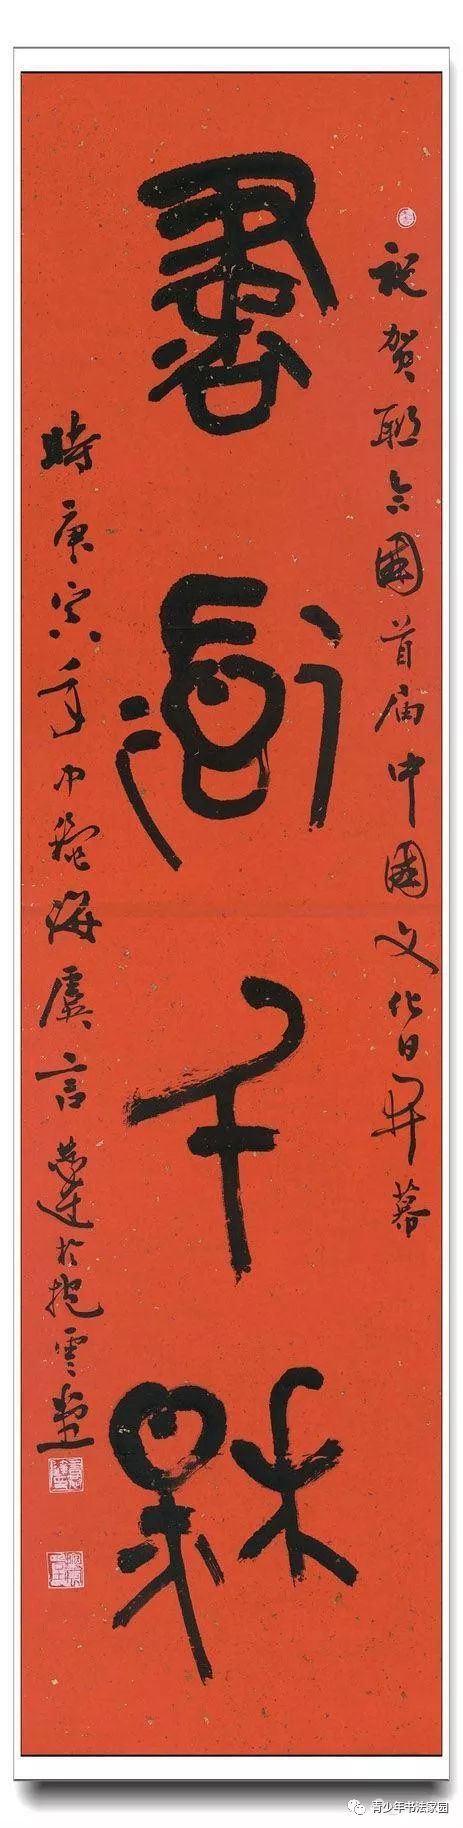 祝贺联合國首届中國文化日开幕
書道千秋
時庚寅年中秋海虞言恭達於抱雲堂
青少年书法家园